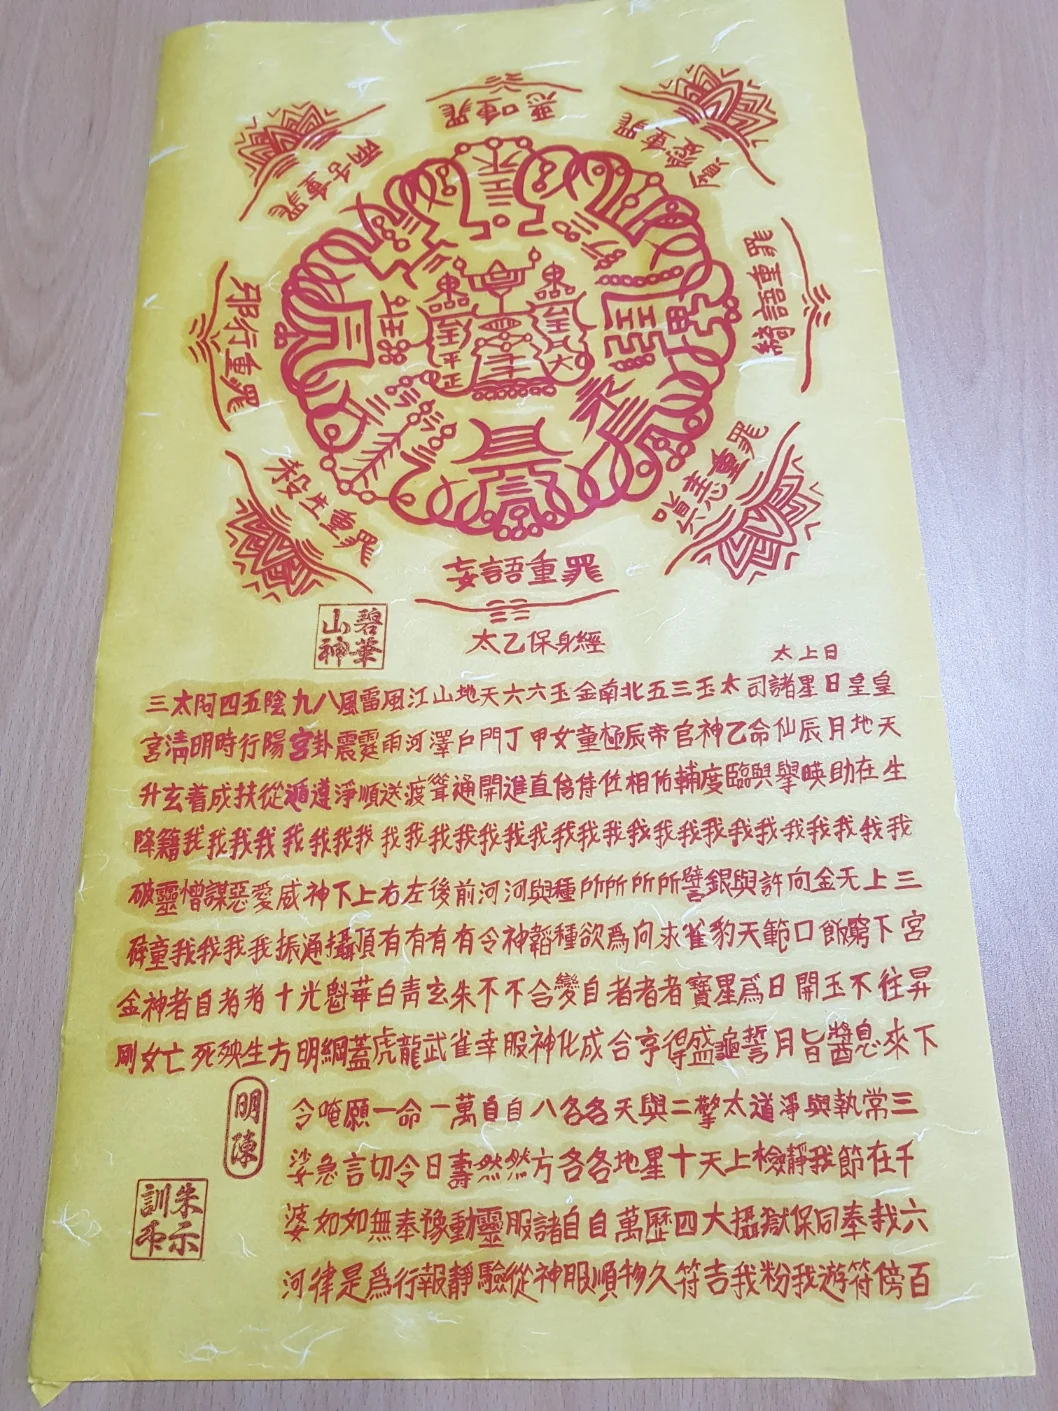 惡口重罪
兩舌重罪
邪行重罪
殺生重罪
妄語重罪
瞋恚重罪
綺語重罪
重罪
碧華山神
太乙保身經
太上曰
皇天生我
皇地在我
日月助我
星辰暎我
諸仙擧我
司命與我
太乙臨我
玉神度我
三官輔我
五帝佑我
北辰相我
南極仕我
金童侍我
玉女倍我
六甲直我
六丁進我
天門開我
地戶通我
山澤聳我
江河渡我
風雨送我
雷霆順我
風震淨我
八卦遵我
九宮遁我
陰陽從我
五行扶我
四時成我
阿明着我
太淸玄籍
三宮升降
三宮昇下
上下往來
无窮不息
金飯玉醬
向口開旨
許範日月
與天爲誓
銀豹星龜
譬雀寶盛
所求者得
所向者亨
所爲者合
所欲自成
種種變化
與韜合神
河神不服
河令不幸
前有朱雀
後有玄武
左有靑龍
右有白虎
上頂華蓋
下攝魁綱
神通光明
威振十方
愛我者生
惡我者殃
謀我自死
憎我者亡
靈童神女
破碎金剛
三千六百
常在我傍
執節奉符
與我同遊
淨靜保我
道檢獄粉
太上攝我
擎天大符
二十四吉
與星歷久
天地萬物
各各自順
各各自服
八方諸神
自然服從
自然靈驗
萬壽動靜
一日豫報
命令奉行
一切無爲
願言如是
唵急如律
令娑婆河
明陳
朱示訓